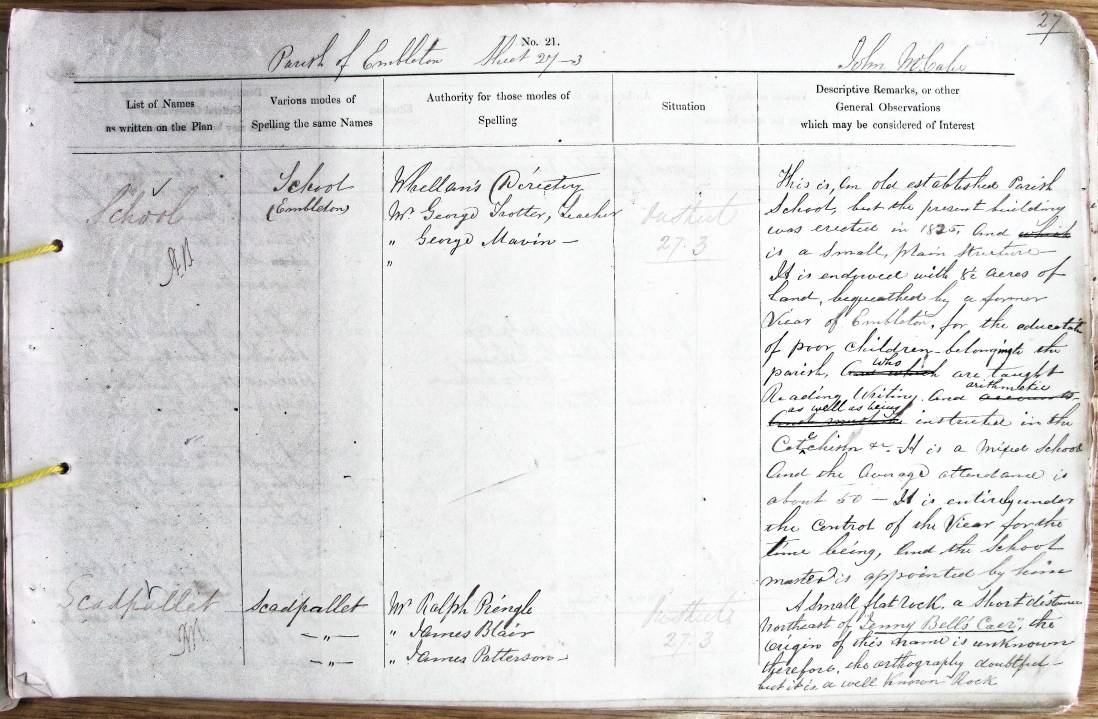 27
No. 21.
Parish of Embleton Sheet 27-3 John McCabe
List of Names
as written on the Plan
Various modes of
Spelling the same Names
Authority for those modes of
Spelling
Situation
Descriptive Remarks, or other
General Observations
which may be considered of Interest
School
School
(Embleton)
Whellan's Directory
Mr George Trotter, Teacher
" George Mavin -
"
27.3
This is, an old established Parish
School, but the present building
was erected in 1825, and which
is a small, plain structure
It is endowed with 8½ acres of
land, bequeathed by a former
Vicar of Embleton, for the education
of poor children belonging to the
parish, and which who are taught
Reading, Writing and accounts arithmetic
as well as being instructed in the
Catechism &c. It is a mixed School
and the average attendance is
about 50 - It is entirely under
the control of the Vicar for the
time being, and the School
master is appointed by him
Scadpallet
Scadpallet
-"-
-"-
Mr Ralph Pringle
" James Blair
" James Patterson -
27.3
A small flat rock, a short distance
northeast of "Jenny Bell's Caer", the
origin of this name is unknown
therefore, the orthography doubtful -
but it is a well known Rock